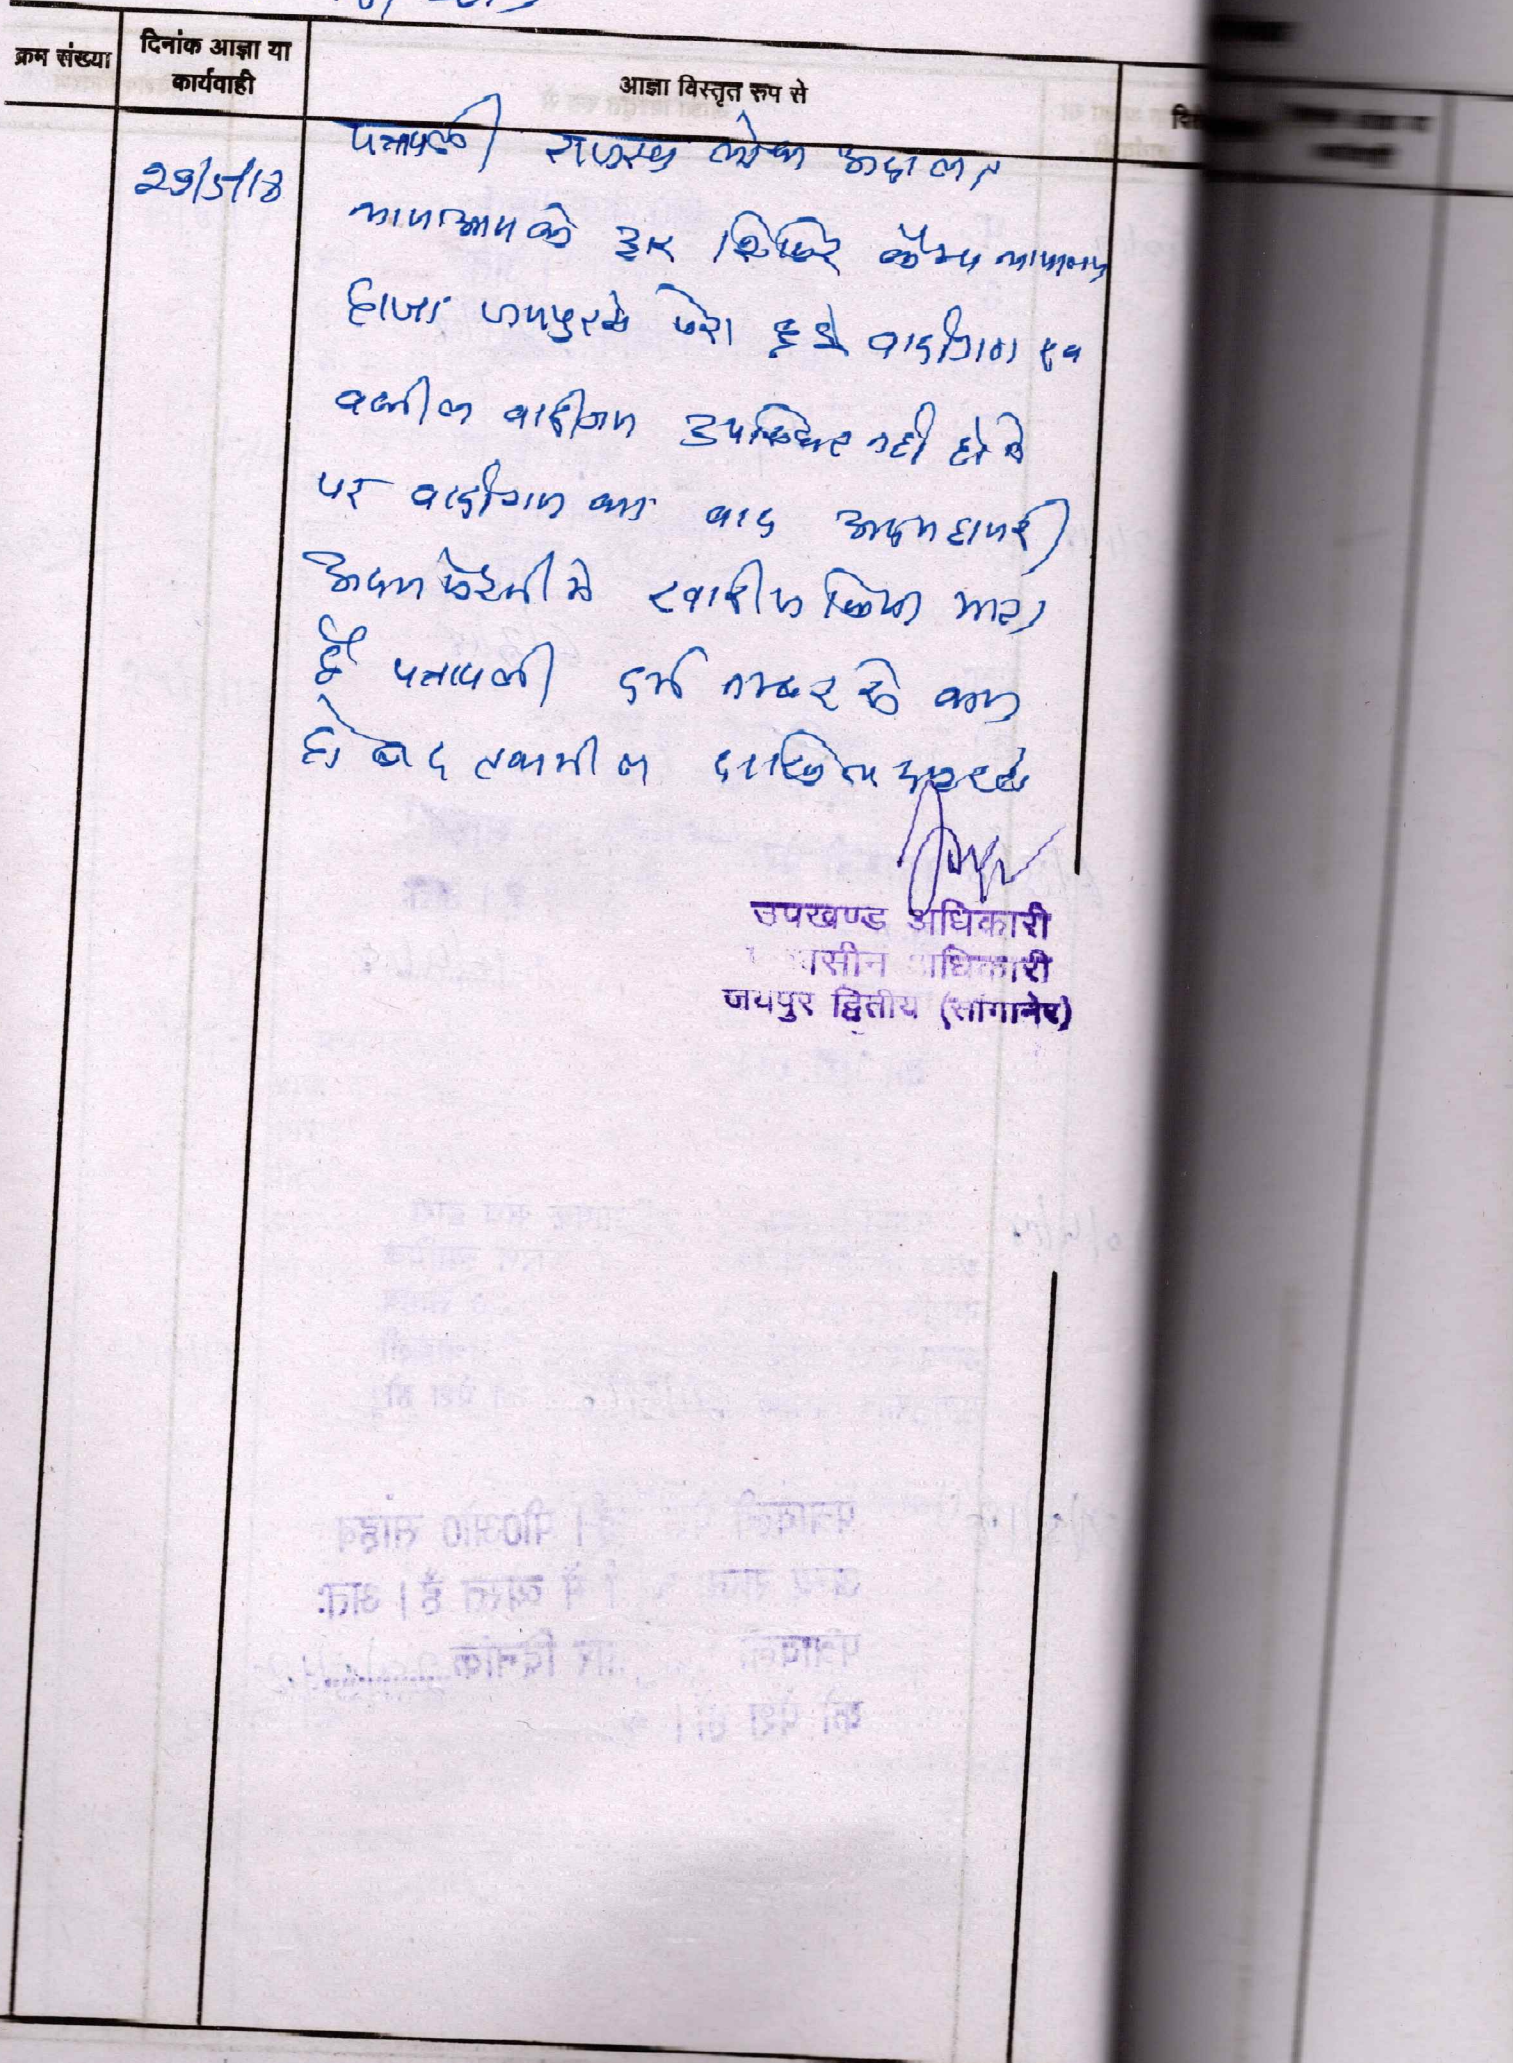 क्रम संख्या
दिनांक आज्ञा या
कार्यवाही
आज्ञा विस्तृत रुप से
29/5/18
पत्रावली राजस्व लोक अदालत
आपके द्वार शिविर कैम्प
हाजा जयपुर में पेश हुई वादीगण एवं
वकील वादीगण उपस्थित नहीं होने
पर वादीगण का वाद अदम हाजरी
अदम पैरवी में खारीज किया जाता
है पत्रावली दर्ज नम्बर से कम
हो बाद तकमील दाखिल दफ्तर हो
उपखण्ड अधिकारी
अधिकारी
जयपुर द्वितीय (सांगानेर)